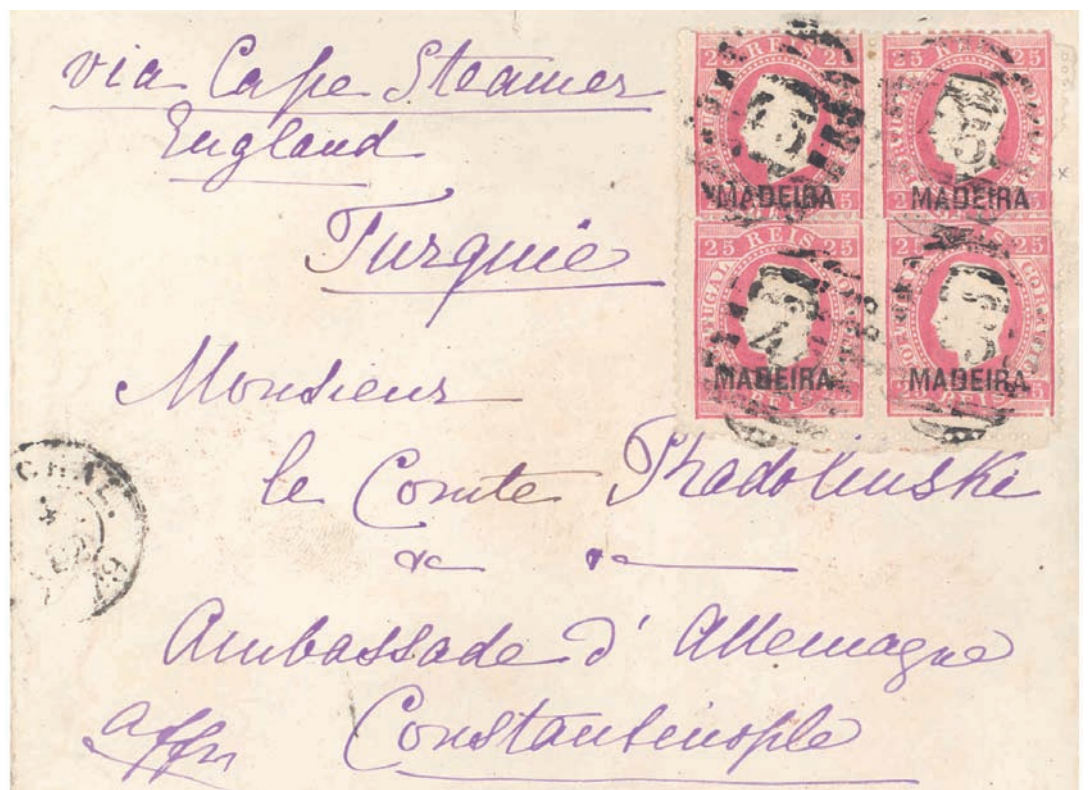 via Cape Steamer
England
Turquie
Monsieur
le Comte Radolinski
Ambassade d' Allemagne
Constantinople
affr
25 REIS 25
25 REIS 25
MADEIRA
MADEIRA
25 REIS 25
25 REIS 25
MADEIRA
MADEIRA